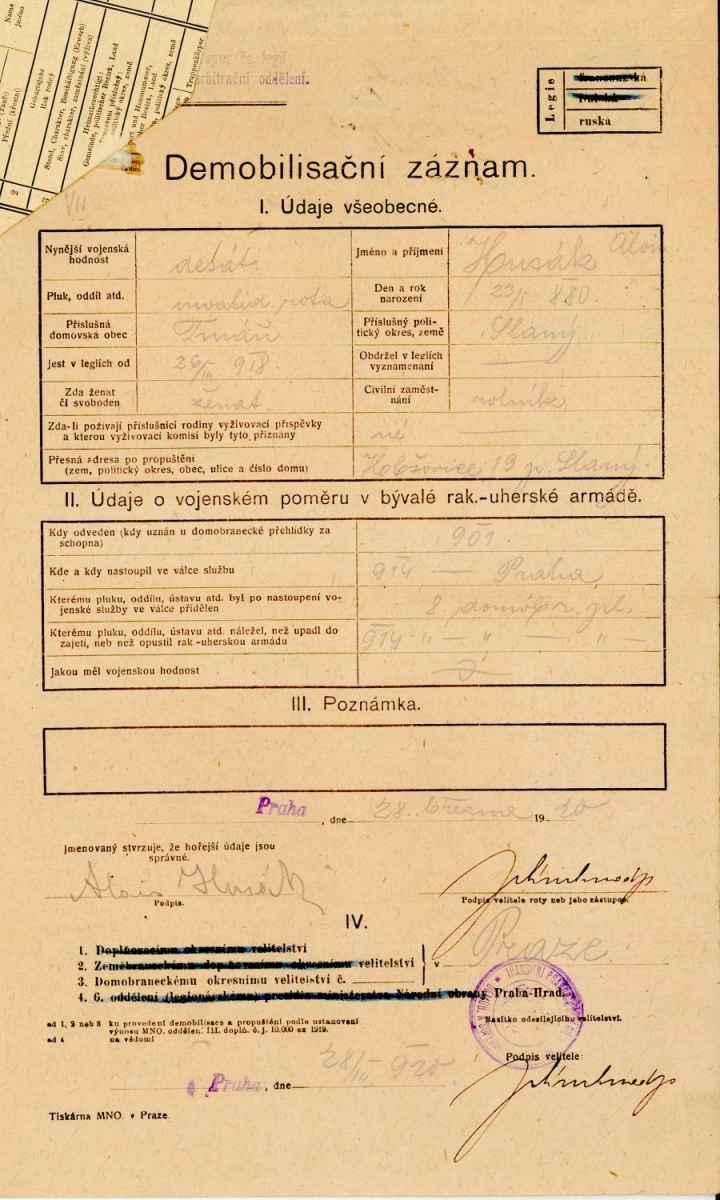 Name
jméno
Přední (křestní)
Geburtsjahr
Rok rodný
Stand, Charakter, Beschäftigung (Erwerb)
Stav, charakter, zaměstnání (výživa)
Heimatberechtigt:
Gemeinde, politischer Bezirk, Land
politický okres, země
Truppenkörper
2
3
arbitrační oddělení.
Legie
francouzská
italská
ruská
VII
Demobilisační záznam.
I. Údaje všeobecné.
Nynější vojenská hodnost
desát.
Jméno a příjmení
Husák Alois
Pluk, oddíl atd.
invalid. rota
Den a rok narození
23/I 880.
Příslušná domovská obec
Příslušný politický okres, země
Slaný.
Jest v legiích od
26/III 918.
Obdržel v legiích vyznamenání
Zda ženat či svoboden
ženat
Civilní zaměstnání
rolník
Zda-li požívají příslušníci rodiny vyživovací příspěvky
a kterou vyživovací komisí byly tyto přiznány
né
Přesná adresa po propuštění
(zem, politický okres, obec, ulice a číslo domu)
Hobšovice 19 p. Slaný.
II. Údaje o vojenském poměru v bývalé rak.-uherské armádě.
Kdy odveden (kdy uznán u domobranecké přehlídky za
schopna)
901.
Kde a kdy nastoupil ve válce službu
914 — Praha
Kterému pluku, oddílu, ústavu atd. byl po nastoupení vo-
jenské služby ve válce přidělen
8. domobr. pl.
Kterému pluku, oddílu, ústavu atd. náležel, než upadl do
zajetí, neb než opustil rak.-uherskou armádu
914 " — " "
Jakou měl vojenskou hodnost
III. Poznámka.
Praha, dne 28. března 1920
Jmenovaný stvrzuje, že hořejší údaje jsou
správné.
Alois Husák
Podpis.
Podpis velitele roty neb jeho zástupce.
IV.
1. Doplňovacímu okresnímu velitelství
2. Zeměbraneckému doplňovacímu okresnímu velitelství
3. Domobraneckému okresnímu velitelství č.
v Praze
4. 6. oddělení (legionářskému) presidia ministerstva Národní obrany Praha-Hrad.
ad 1, 2 neb 3 ku provedení demobilisace a propuštění podle ustanovení
výnosu MNO. oddělení III. doplň. č. j. 10.000 ex 1919.
ad 4 na vědomí
Razítko odesílajícího velitelství.
Podpis velitele:
Praha, dne 28/III 920
Tiskárna MNO. v Praze.